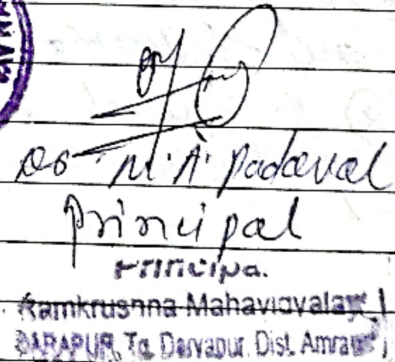 Dr. M. A. Padaval
Principal
Principa.
Ramkrushna Mahavidyalaya,
DARAPUR, Tq. Daryapur, Dist. Amravati